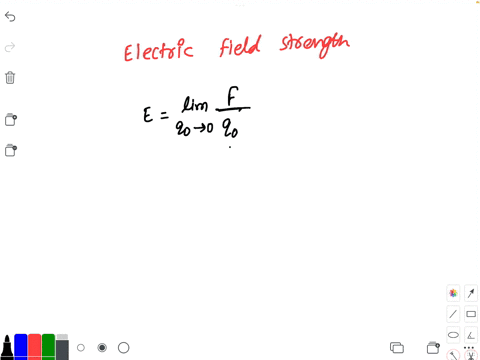 Electric field strength
E = lim F
q0→0 q0